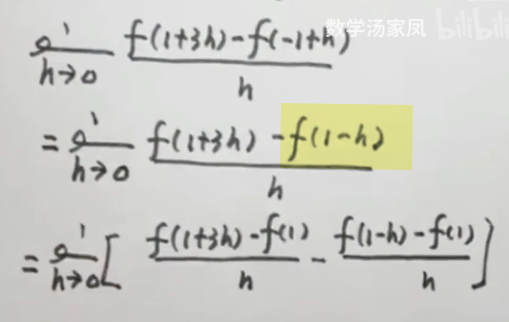 数学汤家凤 bilibili
lim h→0 f(1+3h)-f(-1+h) / h
= lim h→0 f(1+3h)-f(1-h) / h
= lim h→0 [ f(1+3h)-f(1) / h - f(1-h)-f(1) / h ]